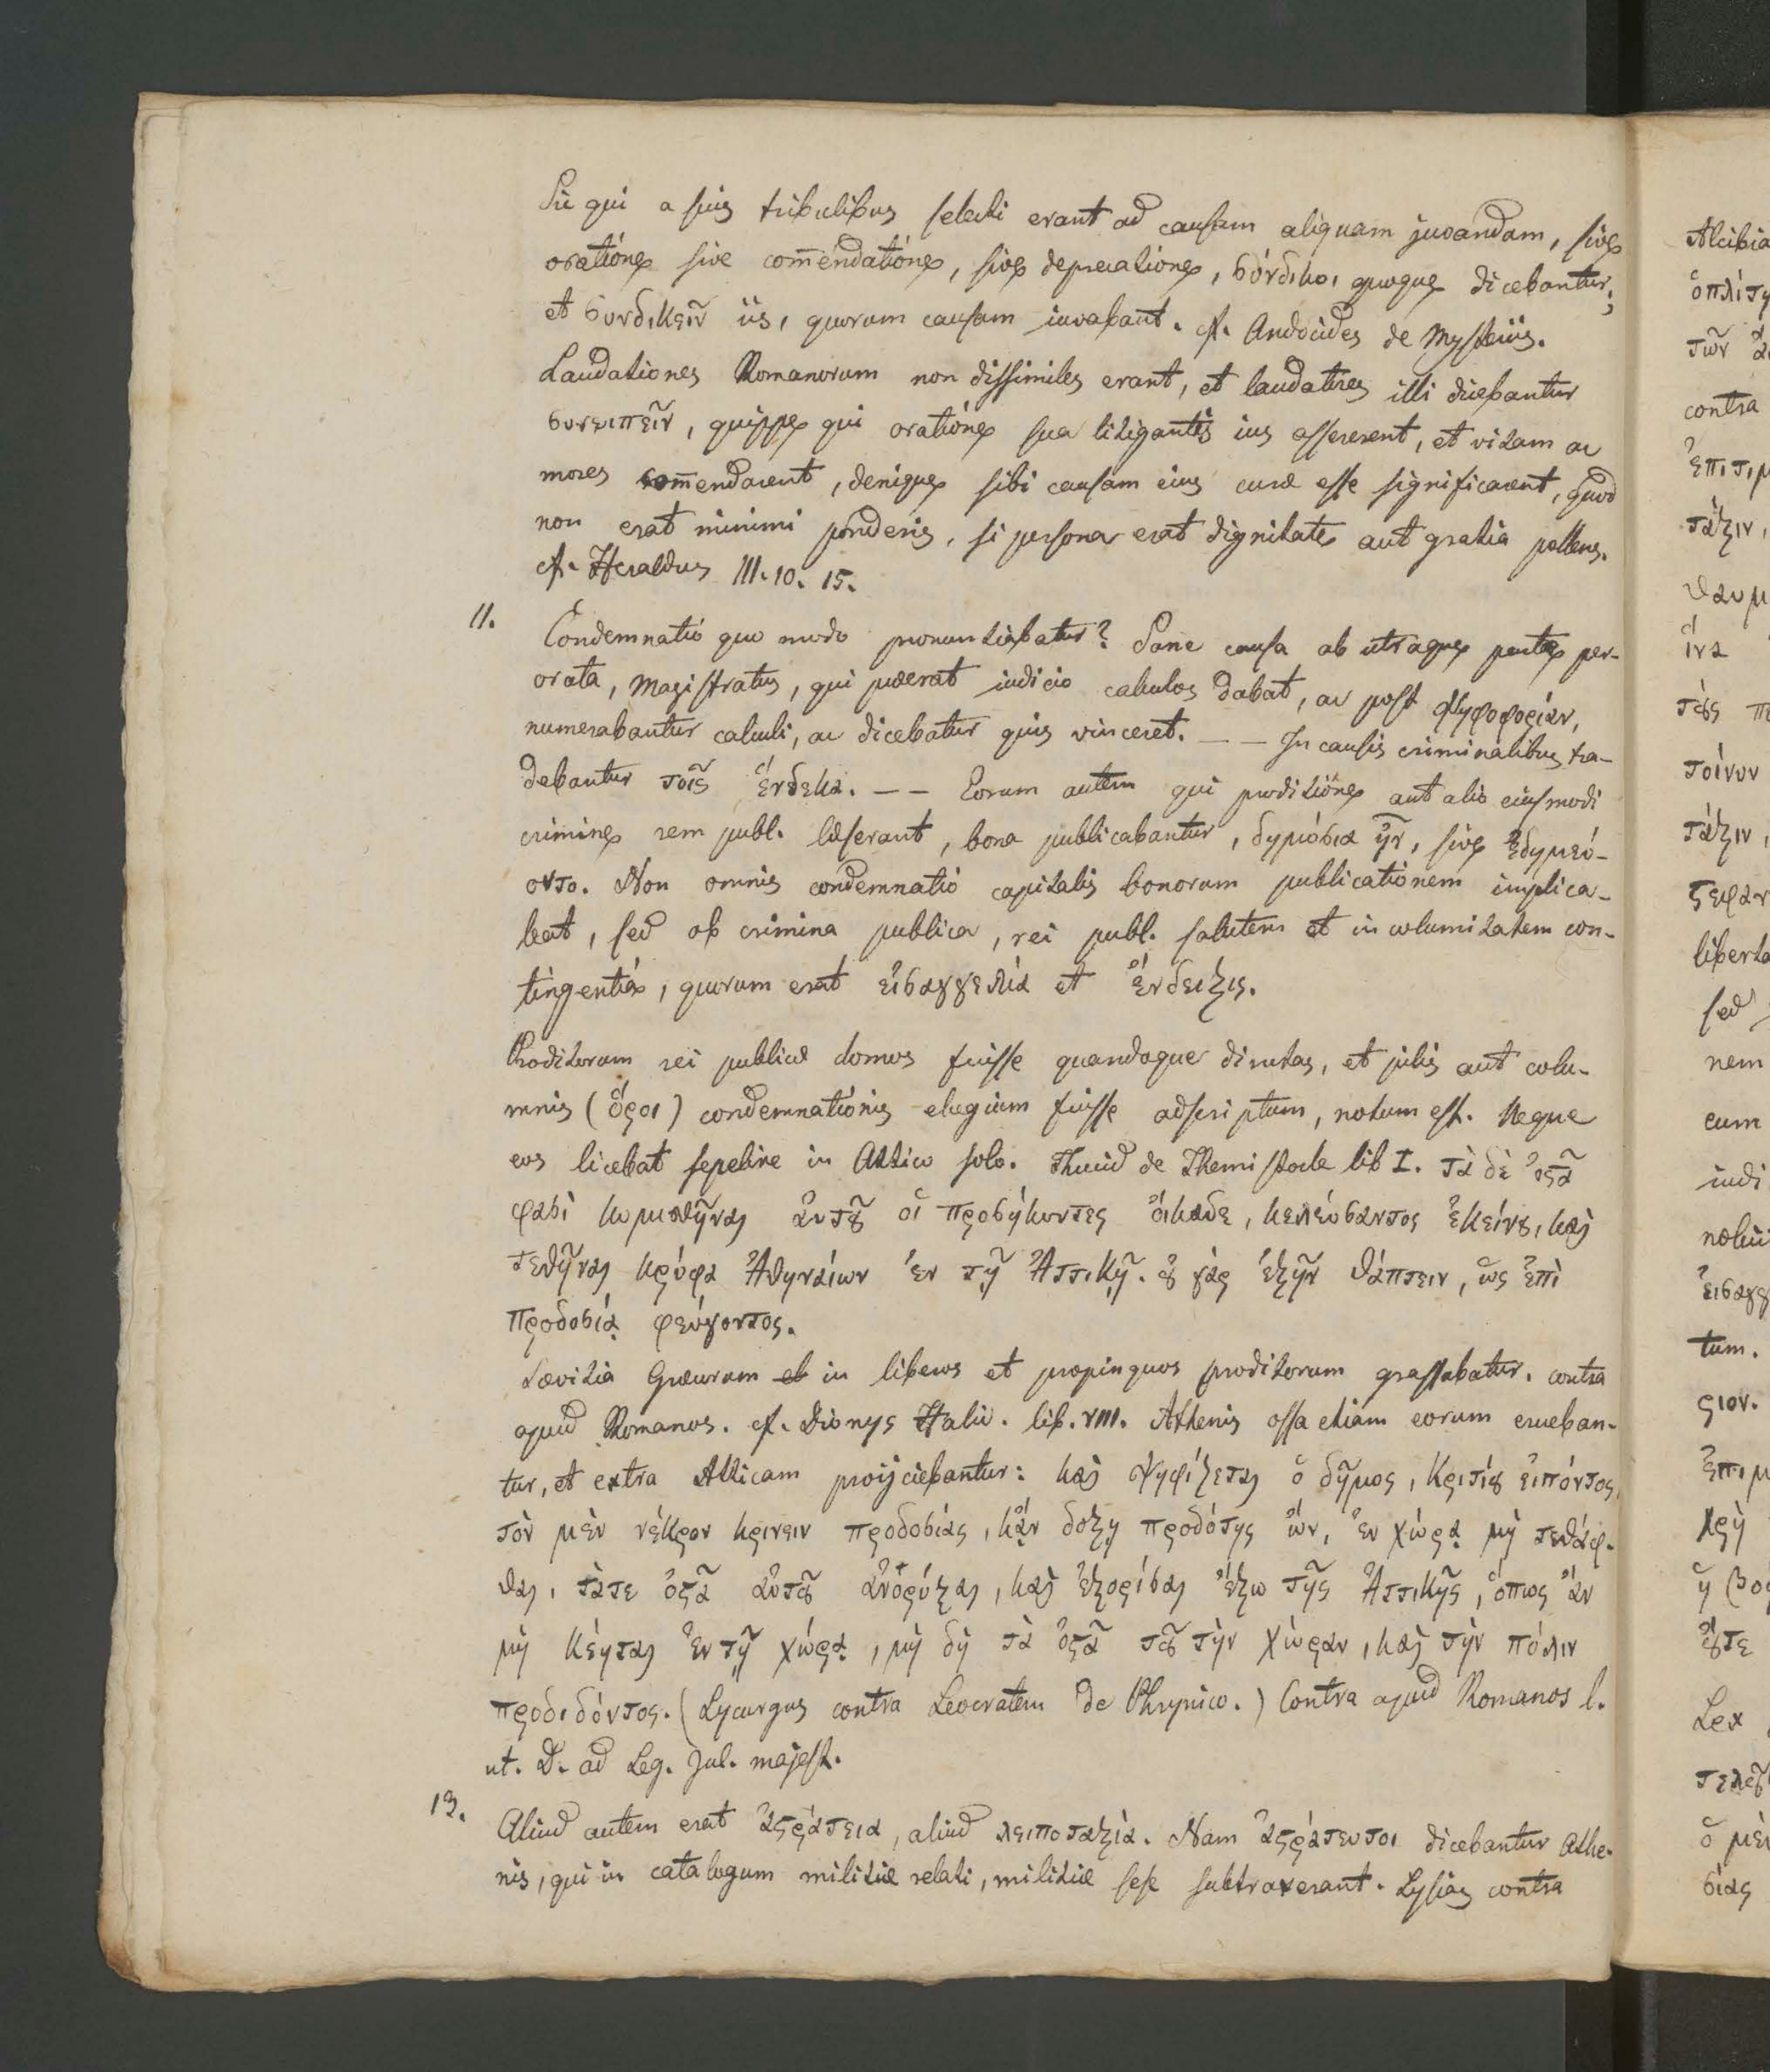 Sic qui a suis tribulibus selecti erant ad causam aliquam juvandam, sive
oratione sive com̄endatione, sive deprecatione, σύνδικοι quoque dicebantur;
et συνδικεῖν iis, quorum causam iuvabant. cf. Andocides de Mysteriis.
Laudationes Romanorum non dissimiles erant, et laudatores illi dicebantur
συνειπεῖν, quippe qui oratione sua litigantis ius assererent, et vitam ac
mores com̄endarent, denique sibi causam eius curæ esse significarent, quod
non erat minimi ponderis, si persona erat dignitate aut gratia pollens.
cf. Heraldus III. 10. 15.
11. Condemnatio quo modo pronuntiabatur? Sane causa ab utraque parte per-
orata, Magistratus, qui præerat iudicio calculos dabat, ac post ψηφοφορίαν,
numerabantur calculi, ac dicebatur quis vinceret. — — In causis criminalibus tra-
debantur τοῖς ἕνδεκα. — — Eorum autem qui proditione aut alio eiusmodi
crimine rem publ. læserant, bona publicabantur, δημόσια ἦν, sive ἐδημεύ-
οντο. Non omnis condemnatio capitalis bonorum publicationem implica-
bat, sed ob crimina publica, rei publ. salutem et incolumitatem con-
tingentia, quorum erat εἰσαγγελία et ἔνδειξις.
Proditorum rei publicæ domos fuisse quandoque dirutas, et pilis aut colu-
mnis (ὅροι) condemnationis elogium fuisse adscriptum, notum est. Neque
eos licebat sepelire in Attico solo. Thucid de Themistocle lib I. τὰ δὲ ὀϛᾶ
φασὶ κομισθῆναι ἀυτȣ͂ οἱ προσήκοντες ὀίκαδε, κελεύσαντος ἐκείνȣ, καὶ
τεθῆναι κρύφα Ἀθηναίων ἐν τῇ Ἀττικῇ. ȣ̓ γὰρ ἐξῆν θάπτειν, ὡς ἐπὶ
προδοσίᾳ φεύγοντος.
Sævitia Græcorum et in liberos et propinquos proditorum grassabatur. contra
apud Romanos. cf. Dionys Halic. lib. VIII. Athenis ossa etiam eorum erueban-
tur, et extra Atticam proijciebantur: καὶ ψηφίζεται ὁ δῆμος, Κριτίȣ ἐιπόντος,
τὸν μὲν νέκρον κρινειν προδοσίας, κᾄν δοξῃ προδότης ὤν, ἐν χώρᾳ μὴ τεθάφ-
θαι, τάτε ὀϛᾶ ἀυτȣ͂ ἀνορύξαι, καὶ ἐξορίσαι ἔξω τῆς Ἀττικῆς, ὅπως ἄν
μὴ κέηται ἐν τῇ χώρᾳ, μὴ δὴ τὰ ὀϛᾶ τȣ͂ τὴν χώραν, καὶ τὴν πόλιν
προδιδόντος. (Lycurgus contra Leocratem de Phrynico.) Contra apud Romanos l.
ut. D. ad Leg. Jul. majest.
12. Aliud autem erat ἀϛράτεια, aliud λειποταξία. Nam ἀϛράτευτοι dicebantur Athe-
nis, qui in catalogum militiæ relati, militiæ sese subtraxerant. Lysias contra
Alcibia
ὁπλίτη
τῶν
contra
ἐπιτιμ
τάξιν,
θαυμ
ἵνα
τοίνυν
τάξιν,
ϛεφαν
liberta
sed
nem
eum
iudi
εἰσαγγ
tum.
ϛιον.
ἐπιμ
χρὴ
ἢ βο
ȣ̓τε
Lex
τελεȣ͂
ὁ μὲν
σίας